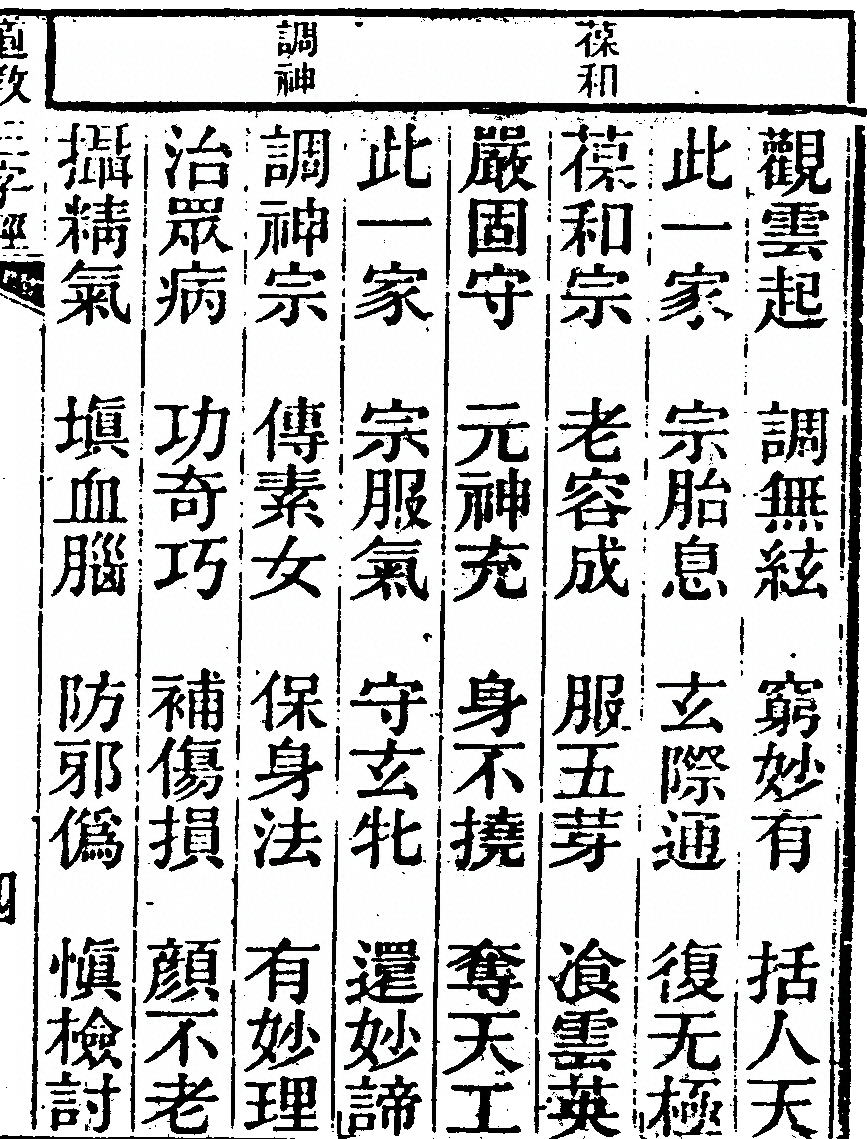 葆和
調神
觀雲起 調無絃 窮妙有 括人天
此一家 宗胎息 玄際通 復无極
葆和宗 老容成 服五芽 飡雲英
嚴固守 元神充 身不撓 奪天工
此一家 宗服氣 守玄牝 還妙諦
調神宗 傳素女 保身法 有妙理
治眾病 功奇巧 補傷損 顏不老
攝精氣 塡血腦 防邪僞 愼檢討
道教三字經
四